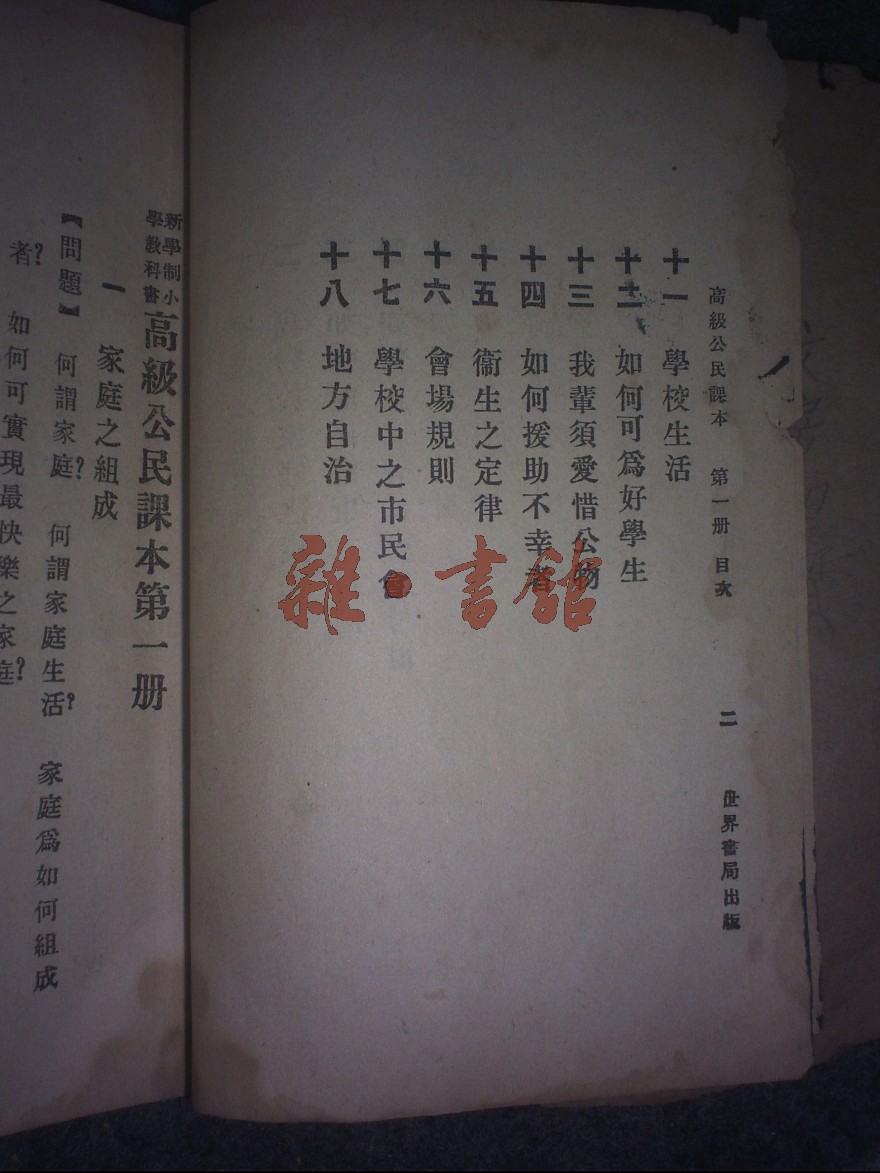 高級公民課本　第一册　目次　二　世界書局出版
十一　學校生活
十二　如何可爲好學生
十三　我輩須愛惜公物
十四　如何援助不幸者
十五　衞生之定律
十六　會場規則
十七　學校中之市民會
十八　地方自治
新學制小學教科書高級公民課本第一册
一　家庭之組成
【問題】何謂家庭？　何謂家庭生活？　家庭爲如何組成
者？　如何可實現最快樂之家庭？
雜·書館